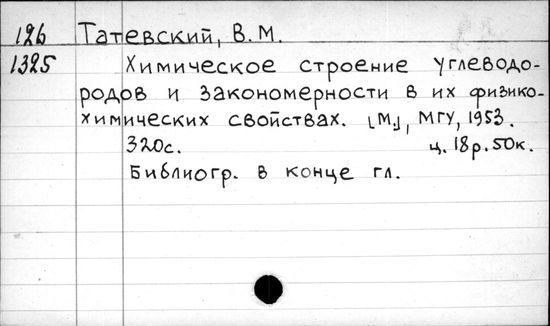 126 Татевский, В.М.
1325 Химическое строение углеводо-
родов и закономерности в их физико-
химических свойствах. [М.], МГУ, 1953.
320с. ц. 18р.50к.
Библиогр. в конце гл.